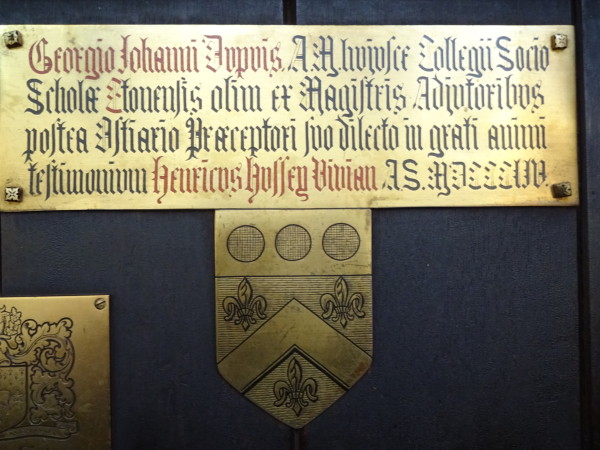 Georgio Iohanni Dvpvis, A.M. hvivsce Collegii Socio
Scholæ Etonensis olim ex Magistris Adivtoribvs
postea Ostiario Præceptori svo dilecto in grati animi
testimonivm Henricvs Hvssey Vivian A.S. MDCCCLIV.